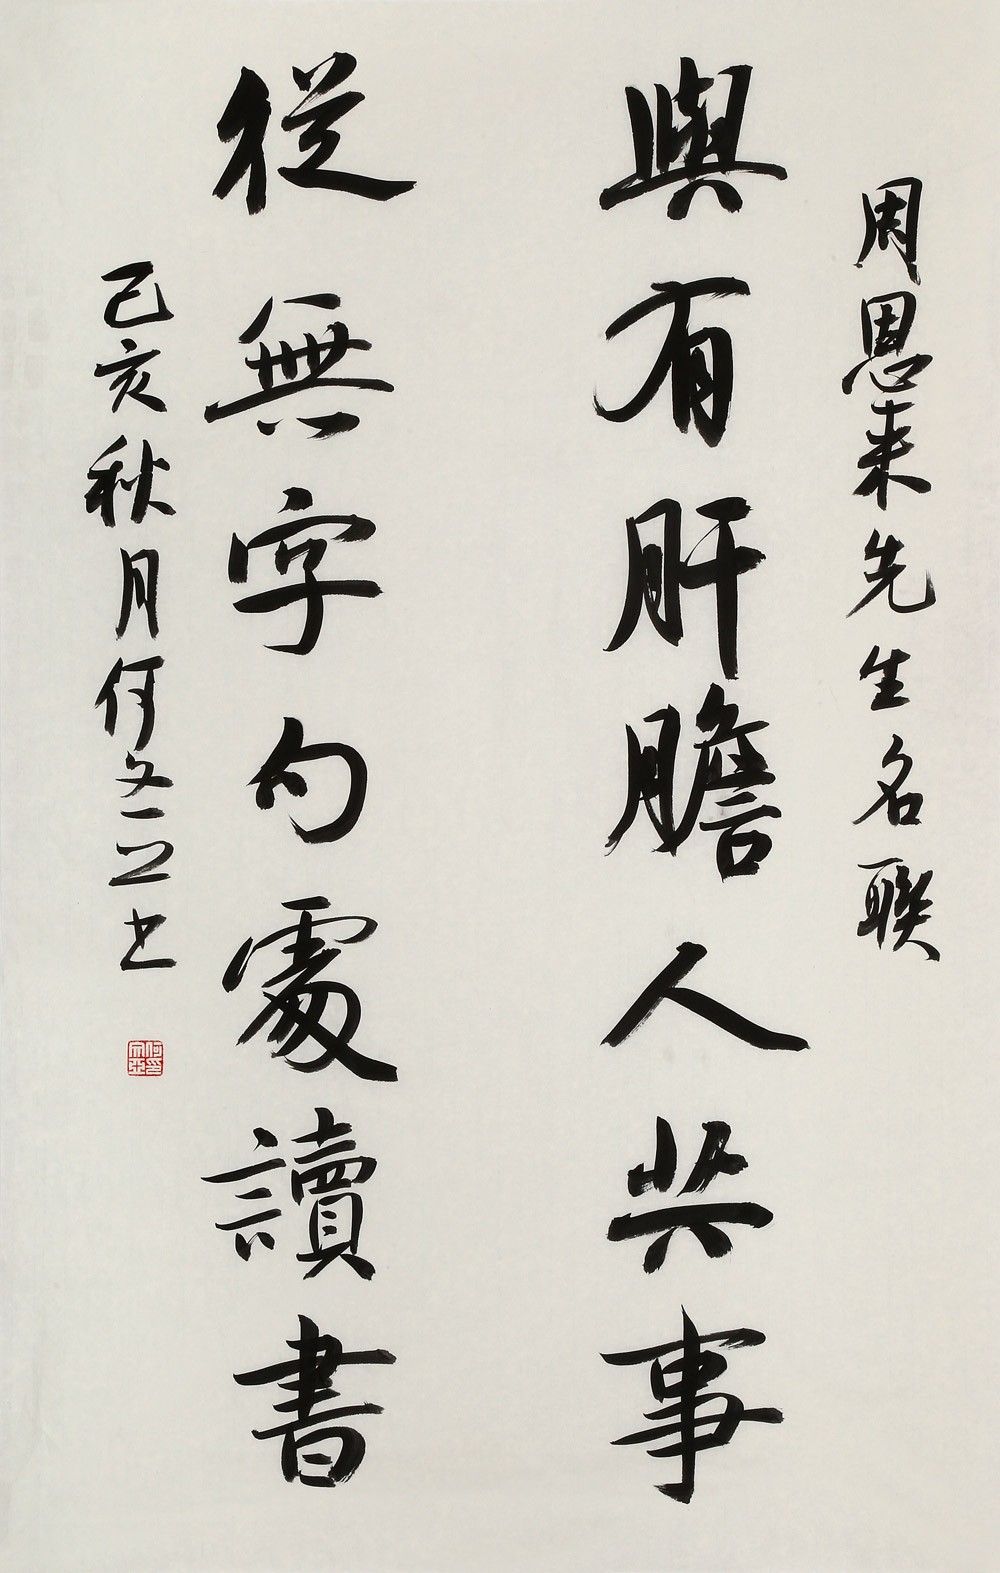 周恩来先生名聯
與有肝膽人共事
從無字句處讀書
己亥秋月何书